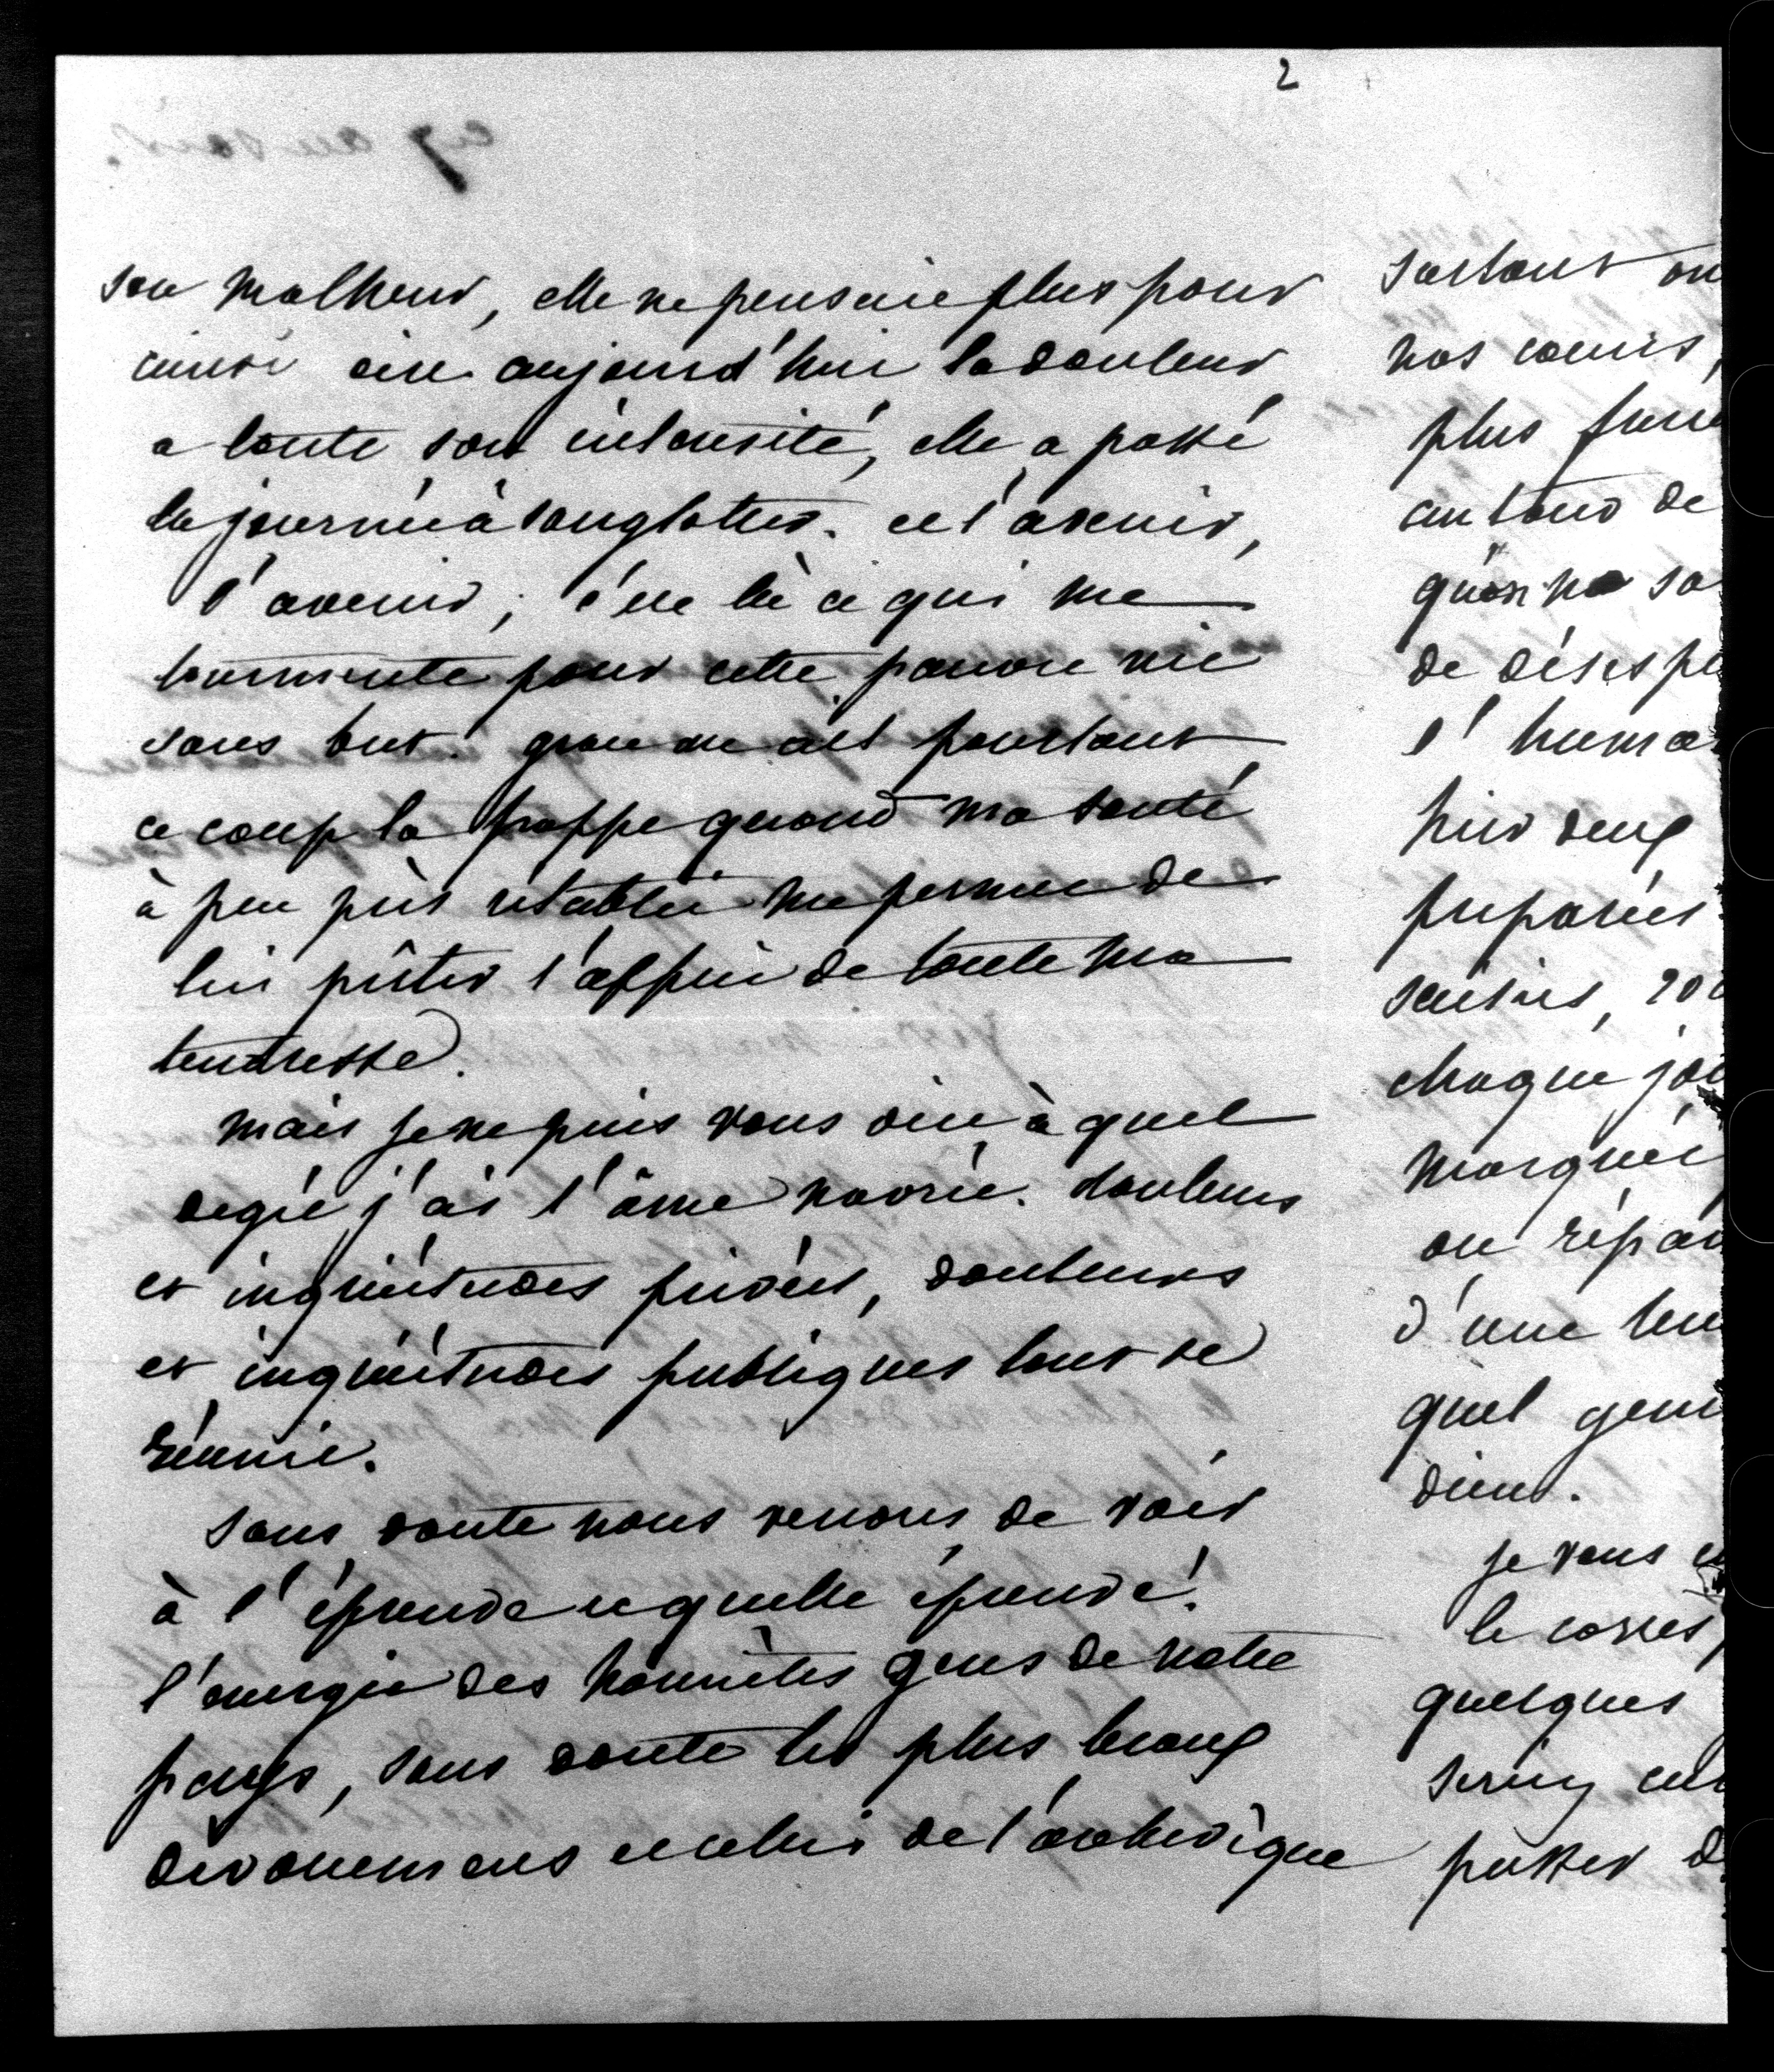 2
son malheur, elle ne pensait plus pour
ainsi dire. aujourd'hui la douleur
a toute son intensité, elle a passé
la journée à sanglotter. et l'avenir,
l'avenir; c'est là ce qui me
tourmente pour cette pauvre vie
sans but. grace au ciel pourtant
ce coup la frappe quand ma santé
à peu près rétablie me permet de
lui prêter l'appui de toute ma
tendresse.
mais je ne puis vous dire à quel
degré j'ai l'âme navrée. douleurs
et inquiétudes privées, douleurs
et inquiétudes publiques tout se
réunie.
sans doute nous venons de voir
à l'épreuve et quelle épreuve!
l'energie des honnêtes gens de notre
pays, sans doute les plus beaux
dévouemens et celui de l'archevêque
surtout on
nos coeurs,
plus
autour de
qu'on ne sa
de désespe
l'huma
hier deux
préparées
saisies, 200
chaque jou
marquée
on répan
d'une
quel
dieu.
je vous
le corres
quelques
passer d